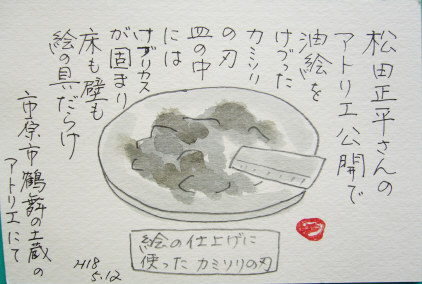 松田正平さんの
アトリエ公開で
油絵を
けづった
カミソリ
の刃
皿の中
には
けずりカス
が固まり
床も壁も
絵の具だらけ
市原市鶴舞の土蔵の
アトリエにて
H18
5.12
絵の仕上げに
使ったカミソリの刃